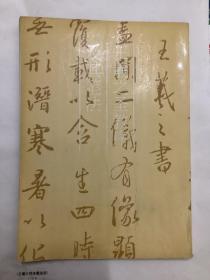 王羲之書
盖聞二儀有像顯
覆載以含生四時
无形潛寒暑以化